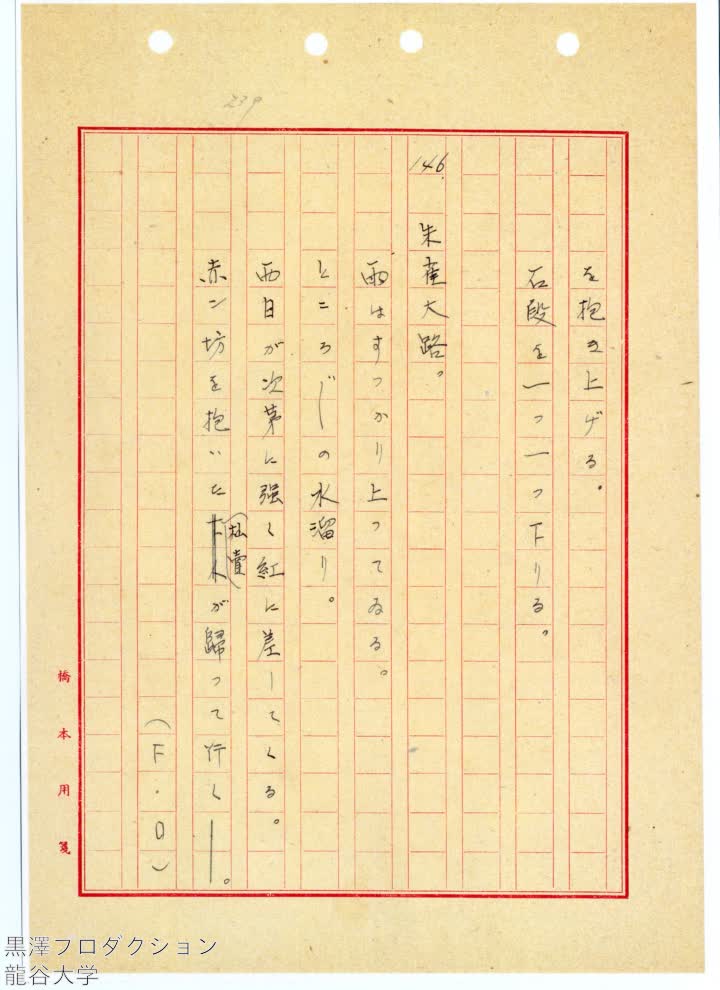 239
を抱き上げる。
石段を一つ一つ下りる。
146.
朱雀大路。
雨はすつかり上つてゐる。
ところ〴〵の水溜り。
西日が次第に強く紅に差してくる。
赤ン坊を抱いた下人杣賣が歸つて行く――。
（F・O）
橋本用箋
黒澤プロダクション
龍谷大学